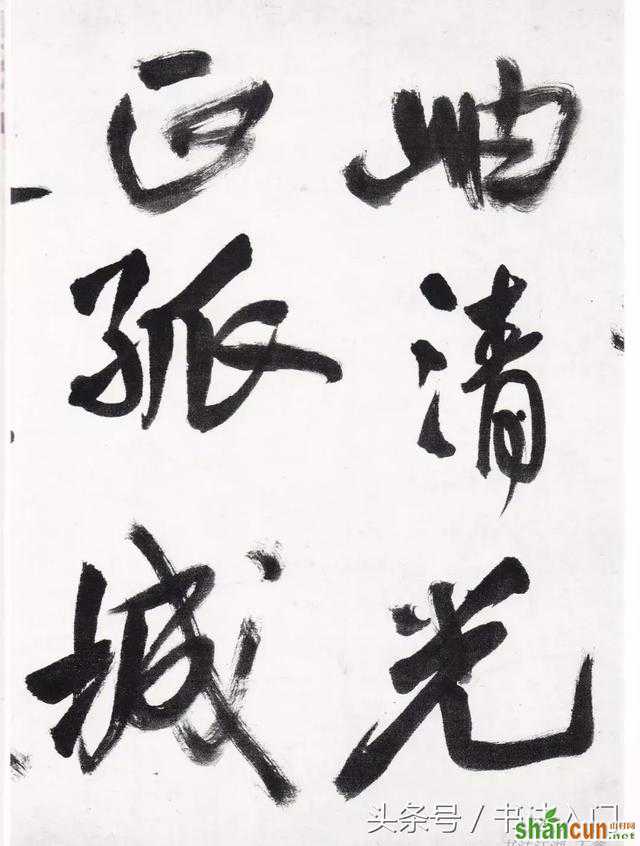 岫清光
孤城
头条号 / 书法入门
shancun
山村网
.net